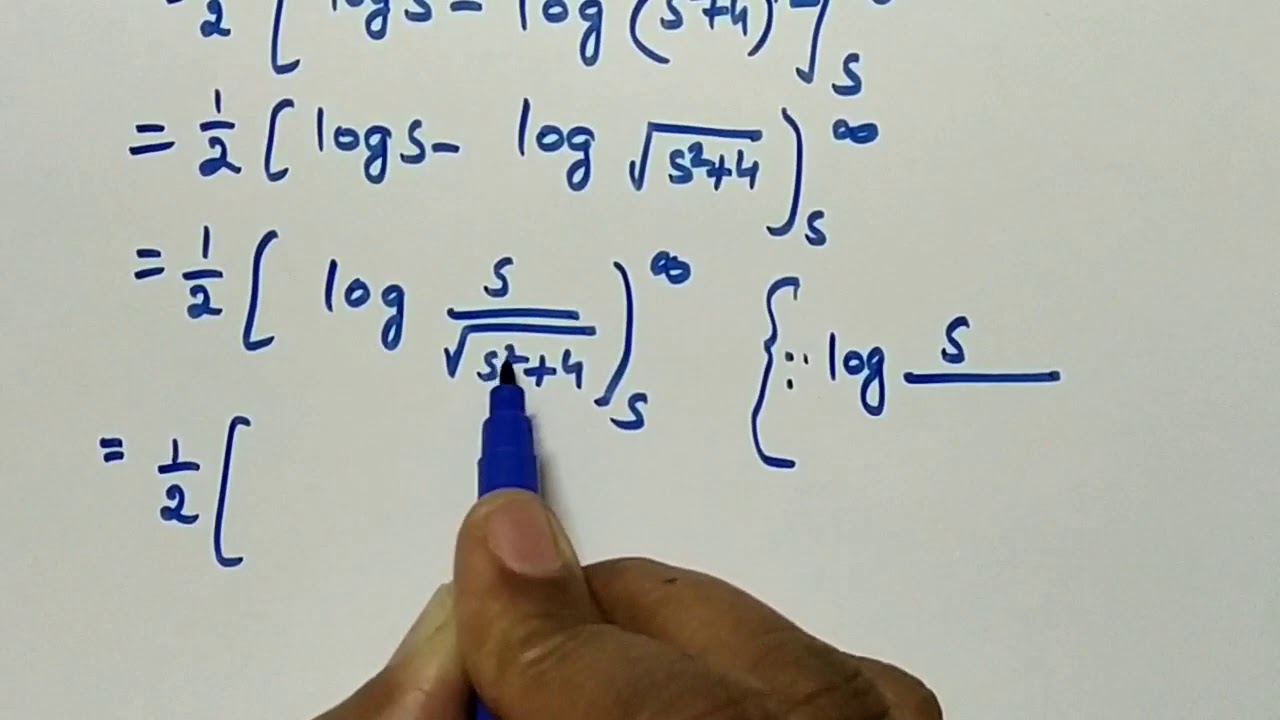 = 1/2 [ log s - log (s²+4) ]_s
= 1/2 [ log s - log √(s²+4) ]_s^∞
= 1/2 [ log s/√(s²+4) ]_s^∞ { ∵ log s/
= 1/2 [